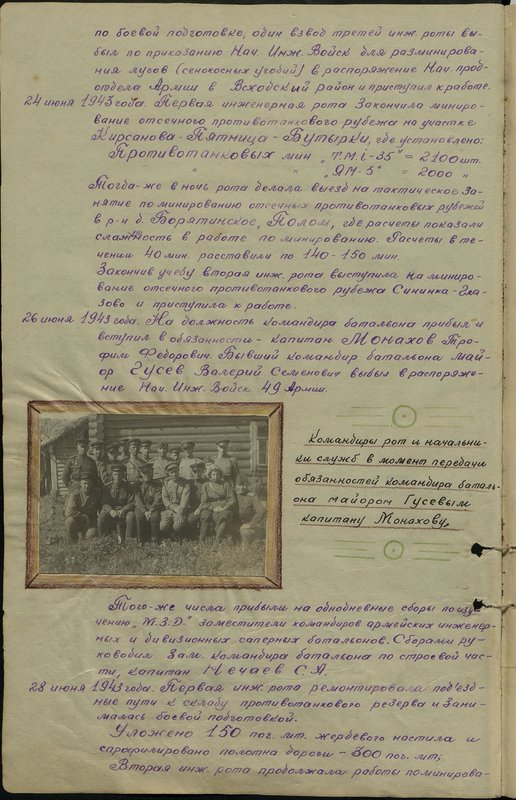 по боевой подготовке, один взвод третей инж. роты вы-
был по приказанию Нач. Инж. Войск для разминирова-
ния лугов (сенокосных угодий) в распоряжение Нач. прод-
отдела Армии в Всходский район и приступил к работе.
24 июня 1943 года. Первая инженерная рота Закончила миниро-
вание отсечного противотанкового рубежа на участке
Кирсанова-Пятница-Бутырки, где установлено:
Противотанковых мин „Т.М.i-35" = 2100 шт.
„ „ „ЯМ-5" = 2000 „
Тогда-же в ночь рота делала выезд на тактическое За-
нятие по минированию отсечных противотанковых рубежей
в р-н д. Борятинское, Полом, где расчеты показали
слаженность в работе по минированию. Расчеты в те-
чении 40 мин. расставили по 140-150 мин.
Закончив учебу вторая инж. рота выступила на миниро-
вание отсечного противотанкового рубежа Сининка-Гла-
зово и приступила к работе.
26 июня 1943 года. На должность командира батальона прибыл и
вступил в обязанности - капитан Монахов Тро-
фим Федорович. Бывший командир батальона май-
ор Гусев Валерий Семенович выбыл в распоряже-
ние Нач. Инж. Войск 49 Армии.
Командиры рот и начальни-
ки служб в момент передачи
обязанностей командира баталь-
она майором Гусевым
капитану Монахову.
Того-же числа прибыли на однодневные сборы по изу-
чению „М.З.Д." заместители командиров армейских инженер-
ных и дивизионных саперных батальонов. Сборами ру-
ководил Зам. командира батальона по строевой час-
ти, капитан Нечаев С.А.
28 июня 1943 года. Первая инж. рота ремонтировала под'езд-
ные пути к складу противотанкового резерва и Зани-
малась боевой подготовкой.
Уложено 150 пог. мт. жердевого настила и
спрофилировано полотна дороги - 500 пог. мт;
Вторая инж. рота продолжала работы по минирова-